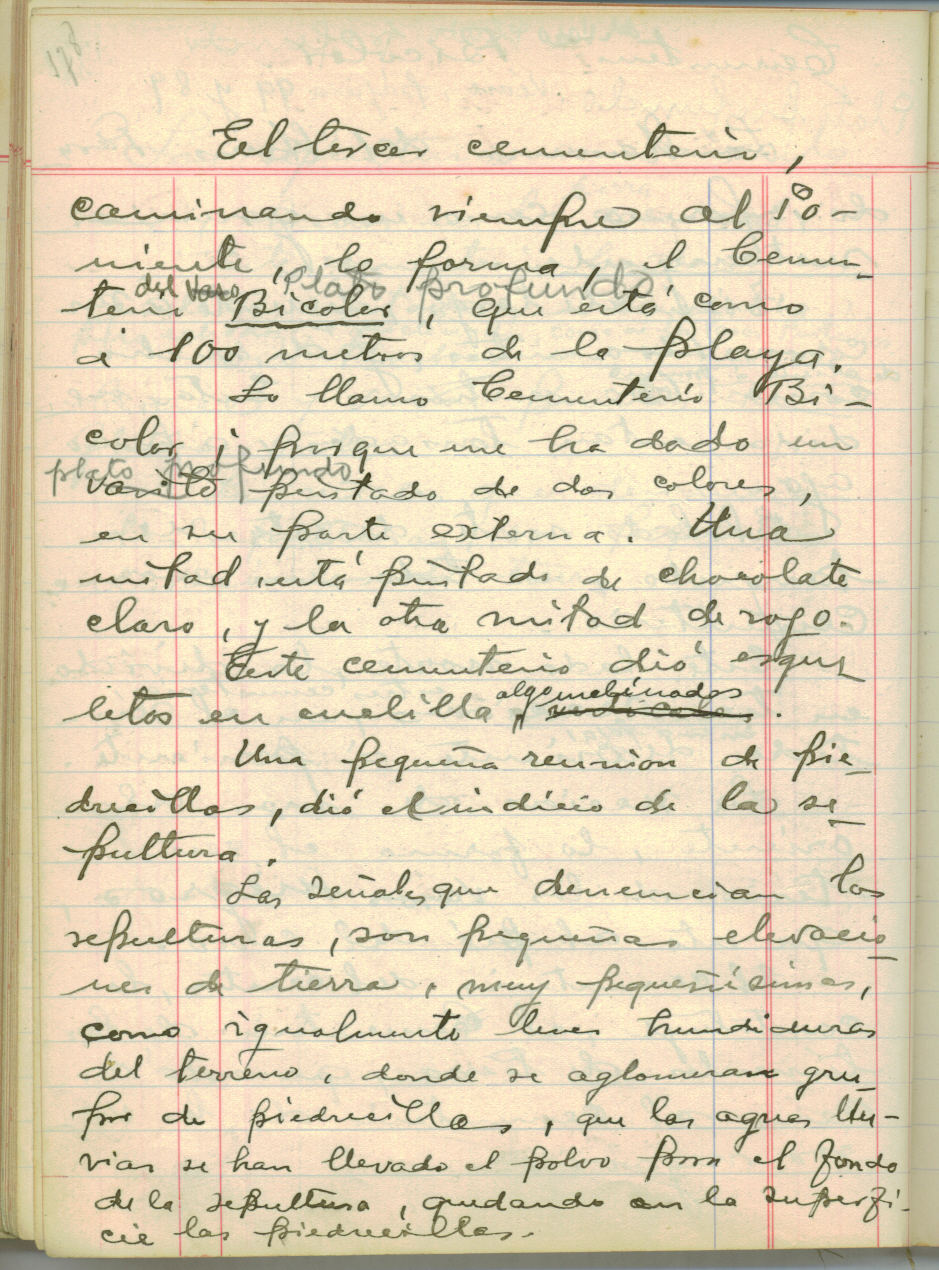 178.
El tercer cementerio,
caminando siempre al Po-
niente, lo forma, el Cemen-
del Vaso Plato profundo
terio Bicolor, que está como
á 100 metros de la playa.
Lo llamo Cementerio Bi-
color, porque me ha dado un
plato profundo
vasito pintado de dos colores,
en su parte externa. Una
mitad está pintado de chocolate
claro, y la otra mitad de rojo.
Este cementerio dió esque-
algo inclinados
letos en cuclilla .
Una pequeña reunion de pie-
drecillas, dió el indicio de la se-
pultura.
Las señales que denuncian las
sepulturas, son pequeñas elevacio-
nes de tierra, muy pequeñísimas,
como igualmente leves hundiduras
del terreno, donde se aglomeran gru-
pos de piedrecillas, que las aguas llu-
vias se han llevado el polvo para el fondo
de la sepultura, quedando en la superfi-
cie las piedrecillas.